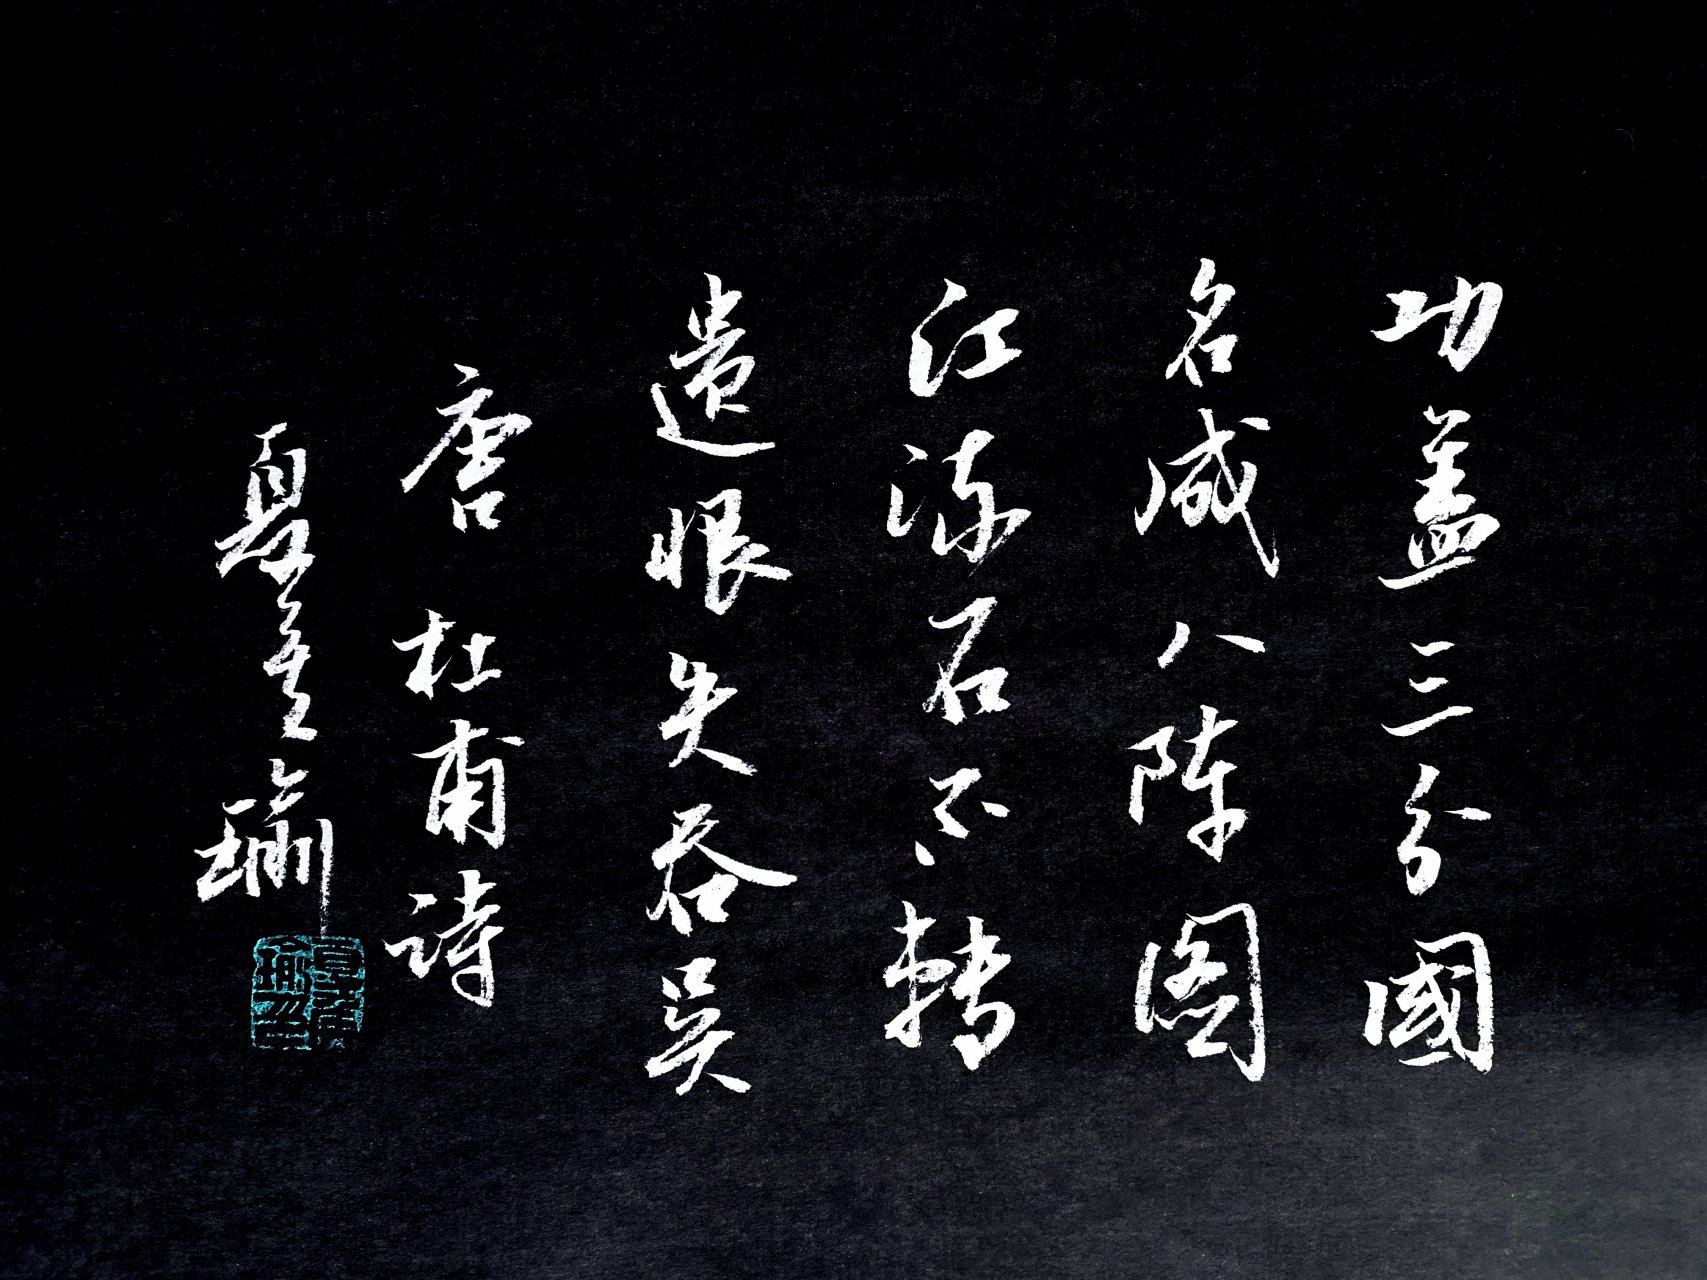 功盖三分國
名成八陣图
江流石不轉
遗恨失吞吳
唐 杜甫詩
夏 瑜